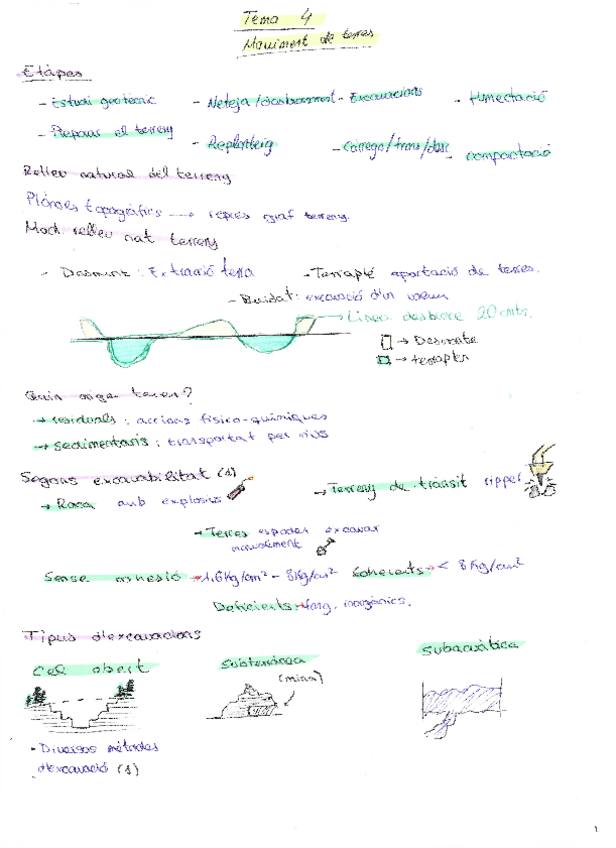 Tema 4
Moviment de terres
Etapes
- Estudi geotècnic - Neteja/desbrossament - Excavacions - Humectació
- Prepara el terreny - Replanteig - Càrrega/trans/desc - compactació
Relleu natural del terreny
Plànols topogràfics → repres graf terreny.
Mod. relleu nat terreny
- Desmunt: Extracció terra - Terraplé aportació de terres.
- Buidat: excavació d'un volum
→ Linea desbroce 20 cmts.
→ Desmonte
→ terraplén
Quin origen tenen?
→ residuals: accions físico-químiques
→ sedimentaris: transportat per rius
Segons excavabilitat (1)
→ Roca amb explosius → Terreny de trànsit ripper
→ Terres es poden excavar manualment
Sense cohesió → 1.6 Kg/cm² - 8 Kg/cm² Coherents → < 8 Kg/cm²
Deficients: inorgànics.
Tipus d'excavacions
Cel obert Subterrània Subaquàtica
(mina)
- Diversos mètodes
d'excavació (1)
1